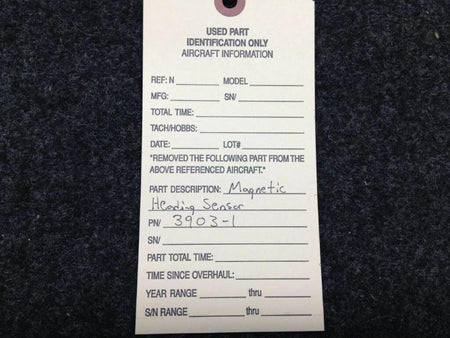 USED PART
IDENTIFICATION ONLY
AIRCRAFT INFORMATION
REF: N ________ MODEL ________
MFG: ________ SN/ ________
TOTAL TIME: ________
TACH/HOBBS: ________
DATE: ________ LOT# ________
*REMOVED THE FOLLOWING PART FROM THE
ABOVE REFERENCED AIRCRAFT.*
PART DESCRIPTION: Magnetic
Heading Sensor
PN/ 3903-1
SN/ ________
PART TOTAL TIME: ________
TIME SINCE OVERHAUL: ________
YEAR RANGE ________ thru ________
S/N RANGE ________ thru ________